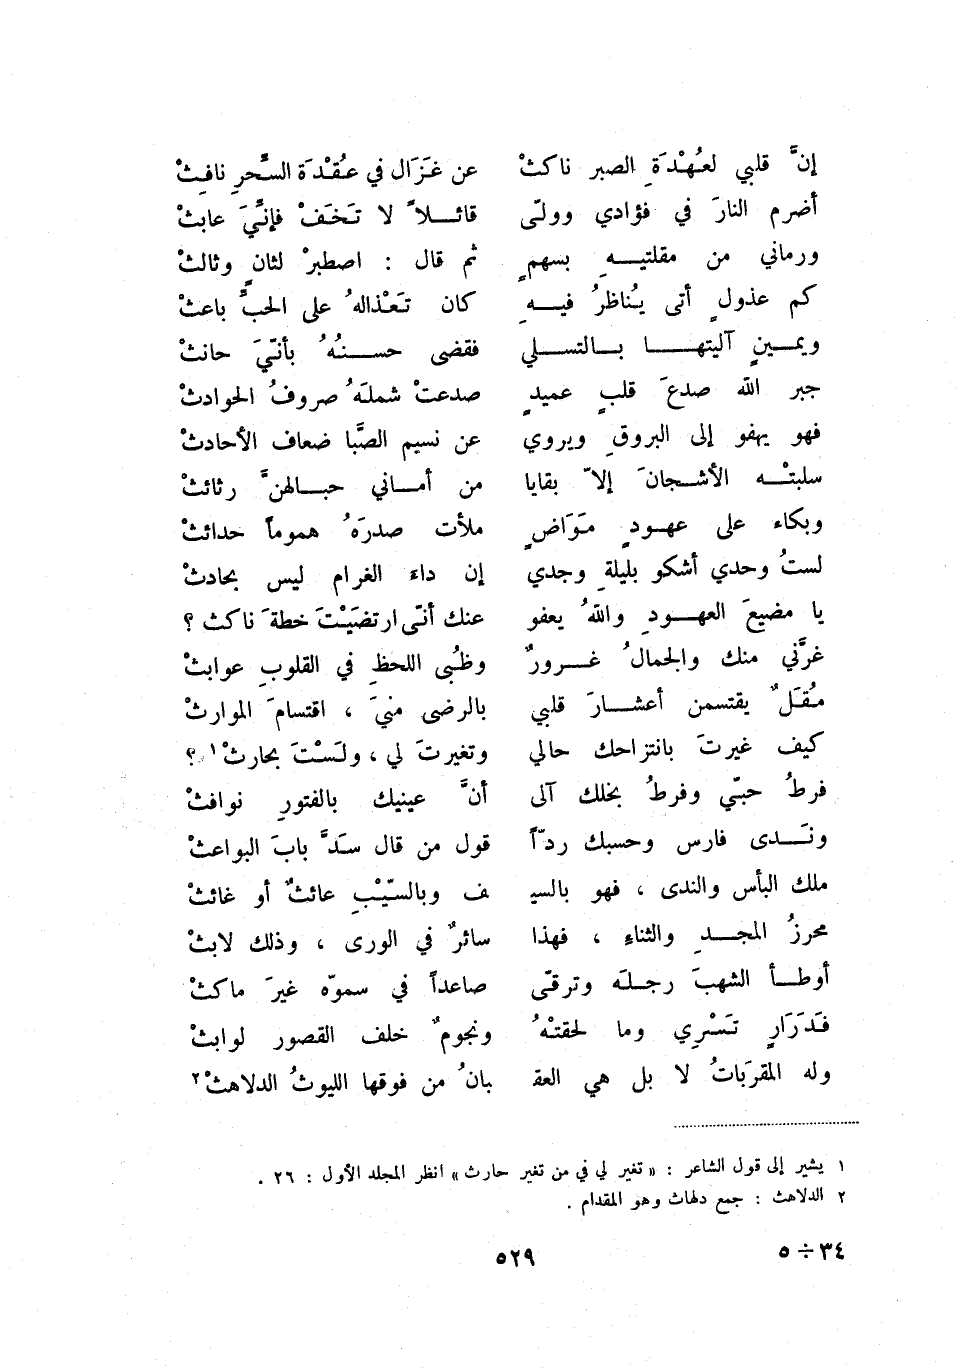 إنَّ قلبي لعُهْدَةِ الصبر ناكثْ عن غَزَال في عقْدَة السَّحرِ نافِثْ
أضرم النارَ في فؤادي وولّى قائلاً لا تَخَفْ فإنَّيَ عابثْ
ورماني من مقلتيهِ بسهمٍ ثم قال : اصطبرْ لثانٍ وثالثْ
كم عذولٍ أتى يُناظرُ فيهِ كان تَعْذالهُ على الحبَّ باعثْ
ويمينٍ آليتها بالتسلي فقضى حسنُهُ بأنّيَ حانثْ
جبر الله صدعَ قلبٍ عميدٍ صدعتْ شملهُ صروفُ الحوادثْ
فهو يهفو إلى البروقِ ويروي عن نسيم الصَّبا ضعاف الأحادثْ
سلبتْه الأشجانَ إلاّ بقايا من أماني حبالهنَّ رثائثْ
وبكاء على عهودٍ مَوَاضٍ ملأت صدرَهُ هموماً حدائثْ
لستُ وحدي أشكو بليلةِ وجدي إن داء الغرام ليس بحادثْ
يا مضيعَ العهودِ واللهُ يعفو عنك أنّى ارتضَيْتَ خطةَ ناكث ؟
غرَّني منك والجمالُ غرورٌ وظُبى اللحظِ في القلوبِ عوابثْ
مُقَلٌ يقتسمن أعشارَ قلبي بالرضى منيَ ، اقتسامَ الموارثْ
كيف غيرتَ بانتزاحك حالي وتغيرتَ لي ، ولَسْتَ بحارثْ١ ؟
فرطُ حبّي وفرطُ بخلك آلى أنَّ عينيك بالفتورِ نوافثْ
ونَدى فارس وحسبك ردّاً قول من قال سَدَّ بابَ البواعثْ
ملك البأس والندى ، فهو بالسيـ ـف وبالسّيْبِ عائثٌ أو غائثْ
محرزُ المجدِ والثناءِ ، فهذا سائرٌ في الورى ، وذلك لابثْ
أوطأ الشهبَ رجلَه وترقّى صاعداً في سموّه غيرَ ماكثْ
فَدَرَارٍ تَسْرِي وما لحقتْهُ ونجومٌ خلف القصور لوابثْ
وله المقرَباتُ لا بل هي العقـ ـبانُ من فوقها الليوثُ الدلاهثْ٢
١ يشير إلى قول الشاعر : « تغير لي في من تغير حارث » انظر المجلد الأول : ٢٦ .
٢ الدلاهث : جمع دلهاث وهو المقدام .
٣٤ ÷ ٥
٥٢٩